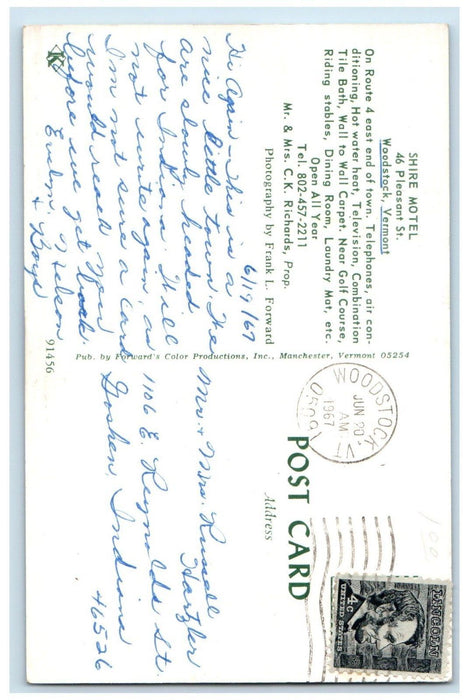 SHIRE MOTEL
46 Pleasant St.
Woodstock, Vermont
On Route 4 east end of town. Telephones, air con-
ditioning, Hot water heat, Television, Combination
Tile Bath, Wall to Wall Carpet. Near Golf Course,
Riding stables, Dining Room, Laundry Mat, etc.
Open All Year
Tel. 802-457-2211
Mr. & Mrs. C.K. Richards, Prop.
Photography by Frank L. Forward
6/19/67
Hi Again - This is a
nice little town. We
are slowly headed
for Indiana. Will
not write again, as
I'm not sure a card
would reach you
before we get back.
Evelyn, Nelson
& Boys
K
91456
Pub. by Forward's Color Productions, Inc., Manchester, Vermont 05254
POST CARD
Address
WOODSTOCK, VT
JUN 20
AM
1967
05091
LINCOLN
4c
UNITED STATES
Mr. & Mrs. Russell
Hartzler
1106 E. Reynolds St.
Goshen, Indiana
46526
100